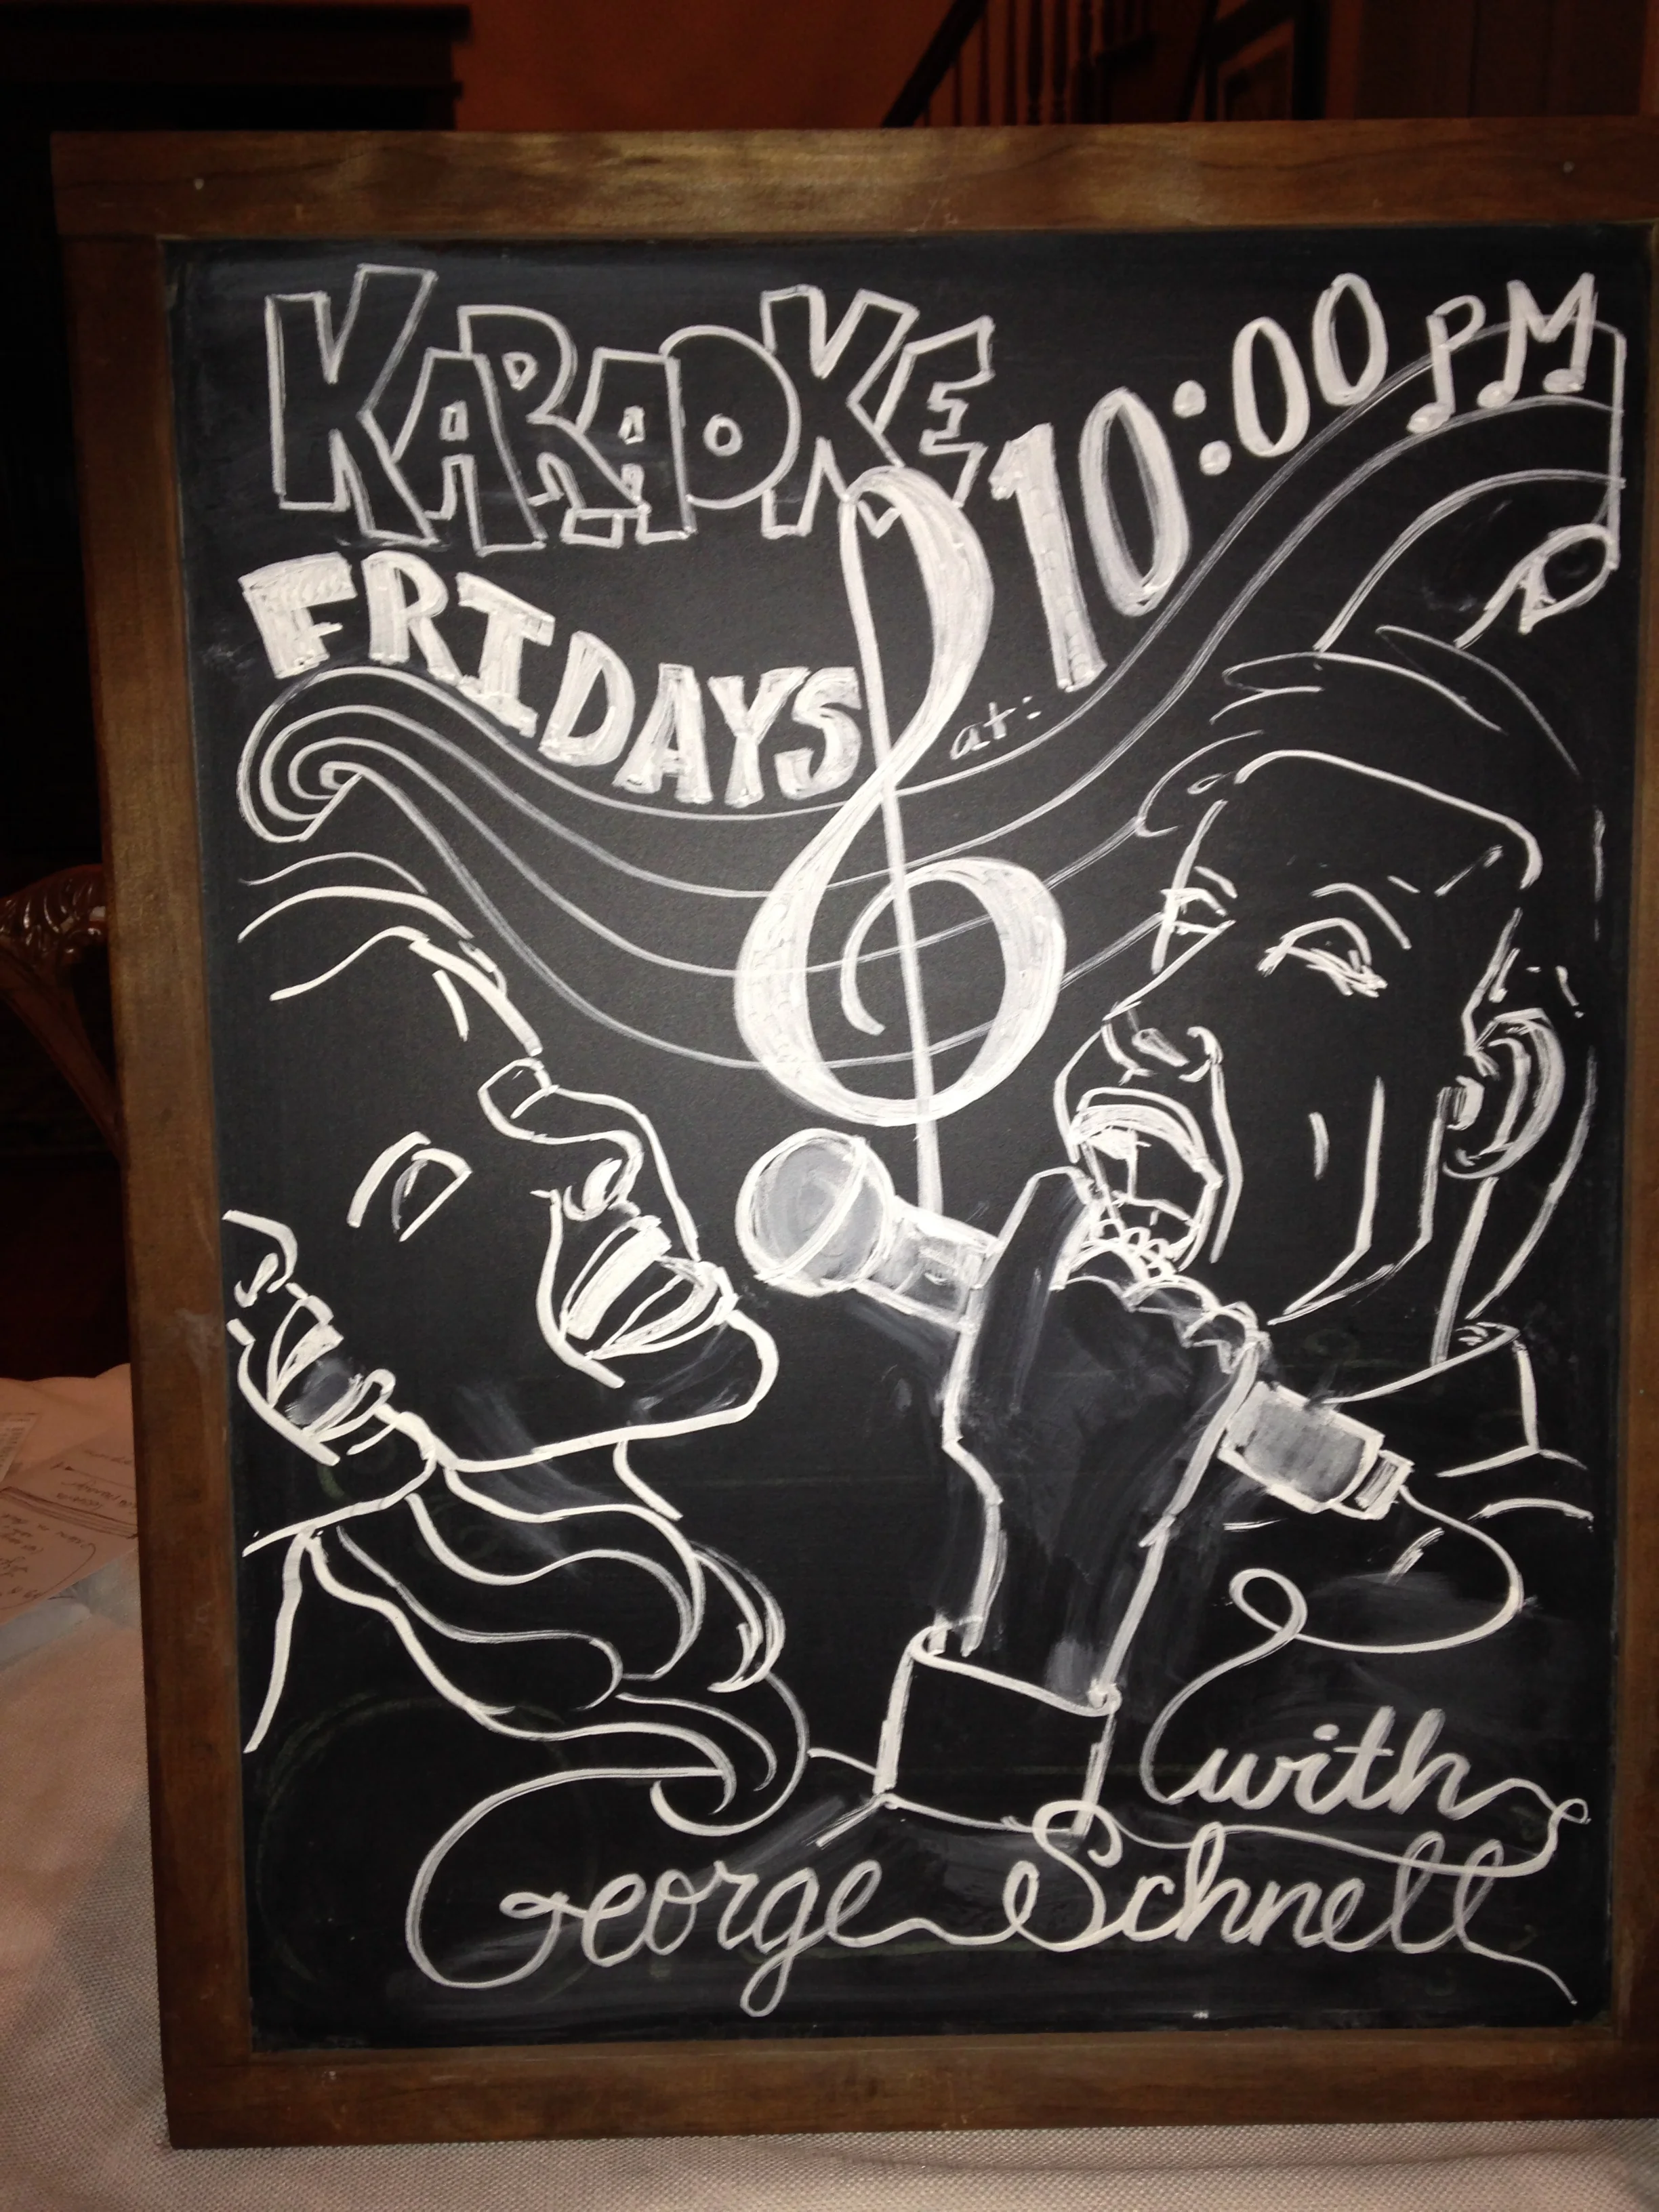 KARAOKE
FRIDAYS
at:
10:00 PM
with
George Schnell